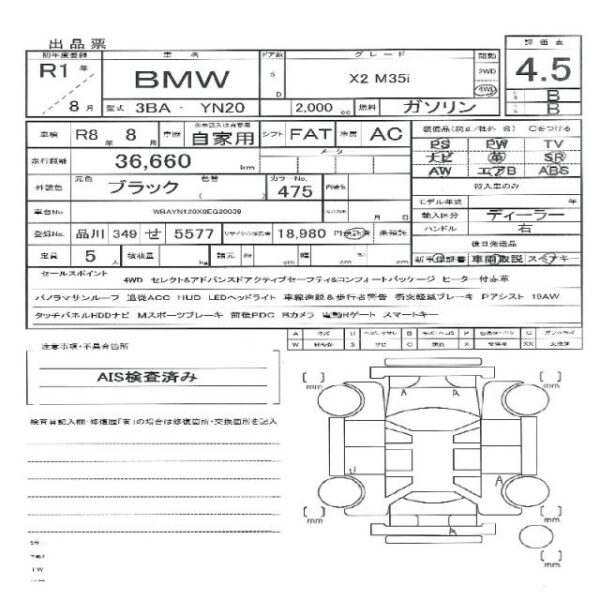 出品票
初年度登録 車名 ドア数 グレード 駆動 評価点
R1年 BMW 5D X2 M35i 2WD 4WD 4.5
8月 型式 3BA - YN20 2,000 cc 燃料 ガソリン B
B
車検 R8年 8月 車歴 自家用 シフト FAT 冷房 AC
PS PW TV
ナビ 革 SR
AW エアB ABS
走行距離 36,660 km メータ
輸入車のみ
外装色 元色 ブラック 色替 カラーNo. 475
モデル年式 年
車台No. 月 日
輸入区分 ディーラー
ハンドル 右
登録No. 品川 349 せ 5577 18,980 円
後日発送品
定員 5人 積載量 kg 諸元 cm 幅 cm cm
新車保証書 車両取説 スペアキー
セールスポイント
4WD セレクト&アドバンスドアクティブセーフティ&コンフォートパッケージ ヒーター付赤革
パノラマサンルーフ 追従ACC HUD LEDヘッドライト 車線逸脱&歩行者警告 衝突軽減ブレーキ Pアシスト 19AW
タッチパネルHDDナビ Mスポーツブレーキ 前後PDC Bカメラ 電動Rゲート スマートキー
注意事項・不具合箇所
AIS検査済み
検査員記入欄・修復歴「有」の場合は修復箇所・交換箇所を記入
mm
mm
A A
U
A
mm
mm
A
mm